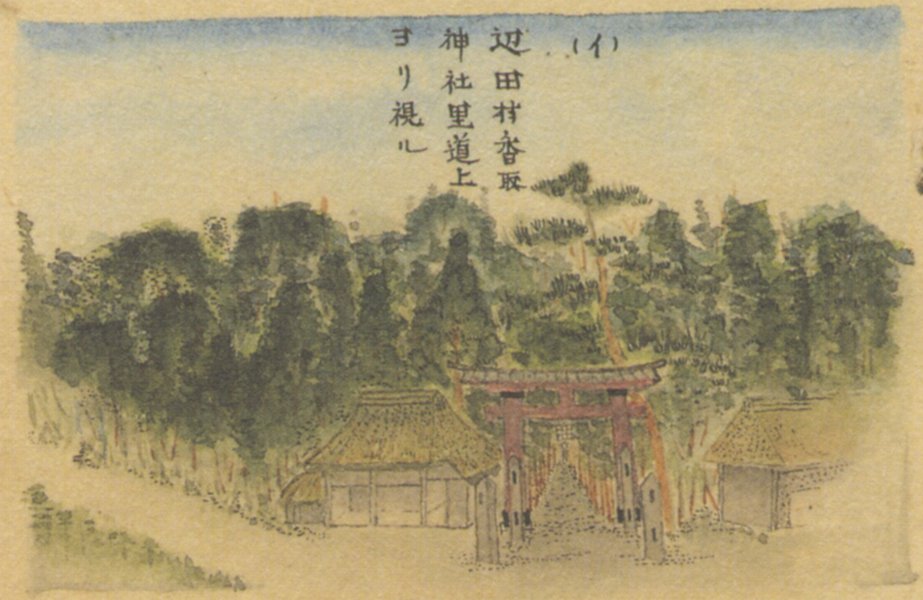 (イ)
辺田村香取
神社里道上
ヨリ視ル